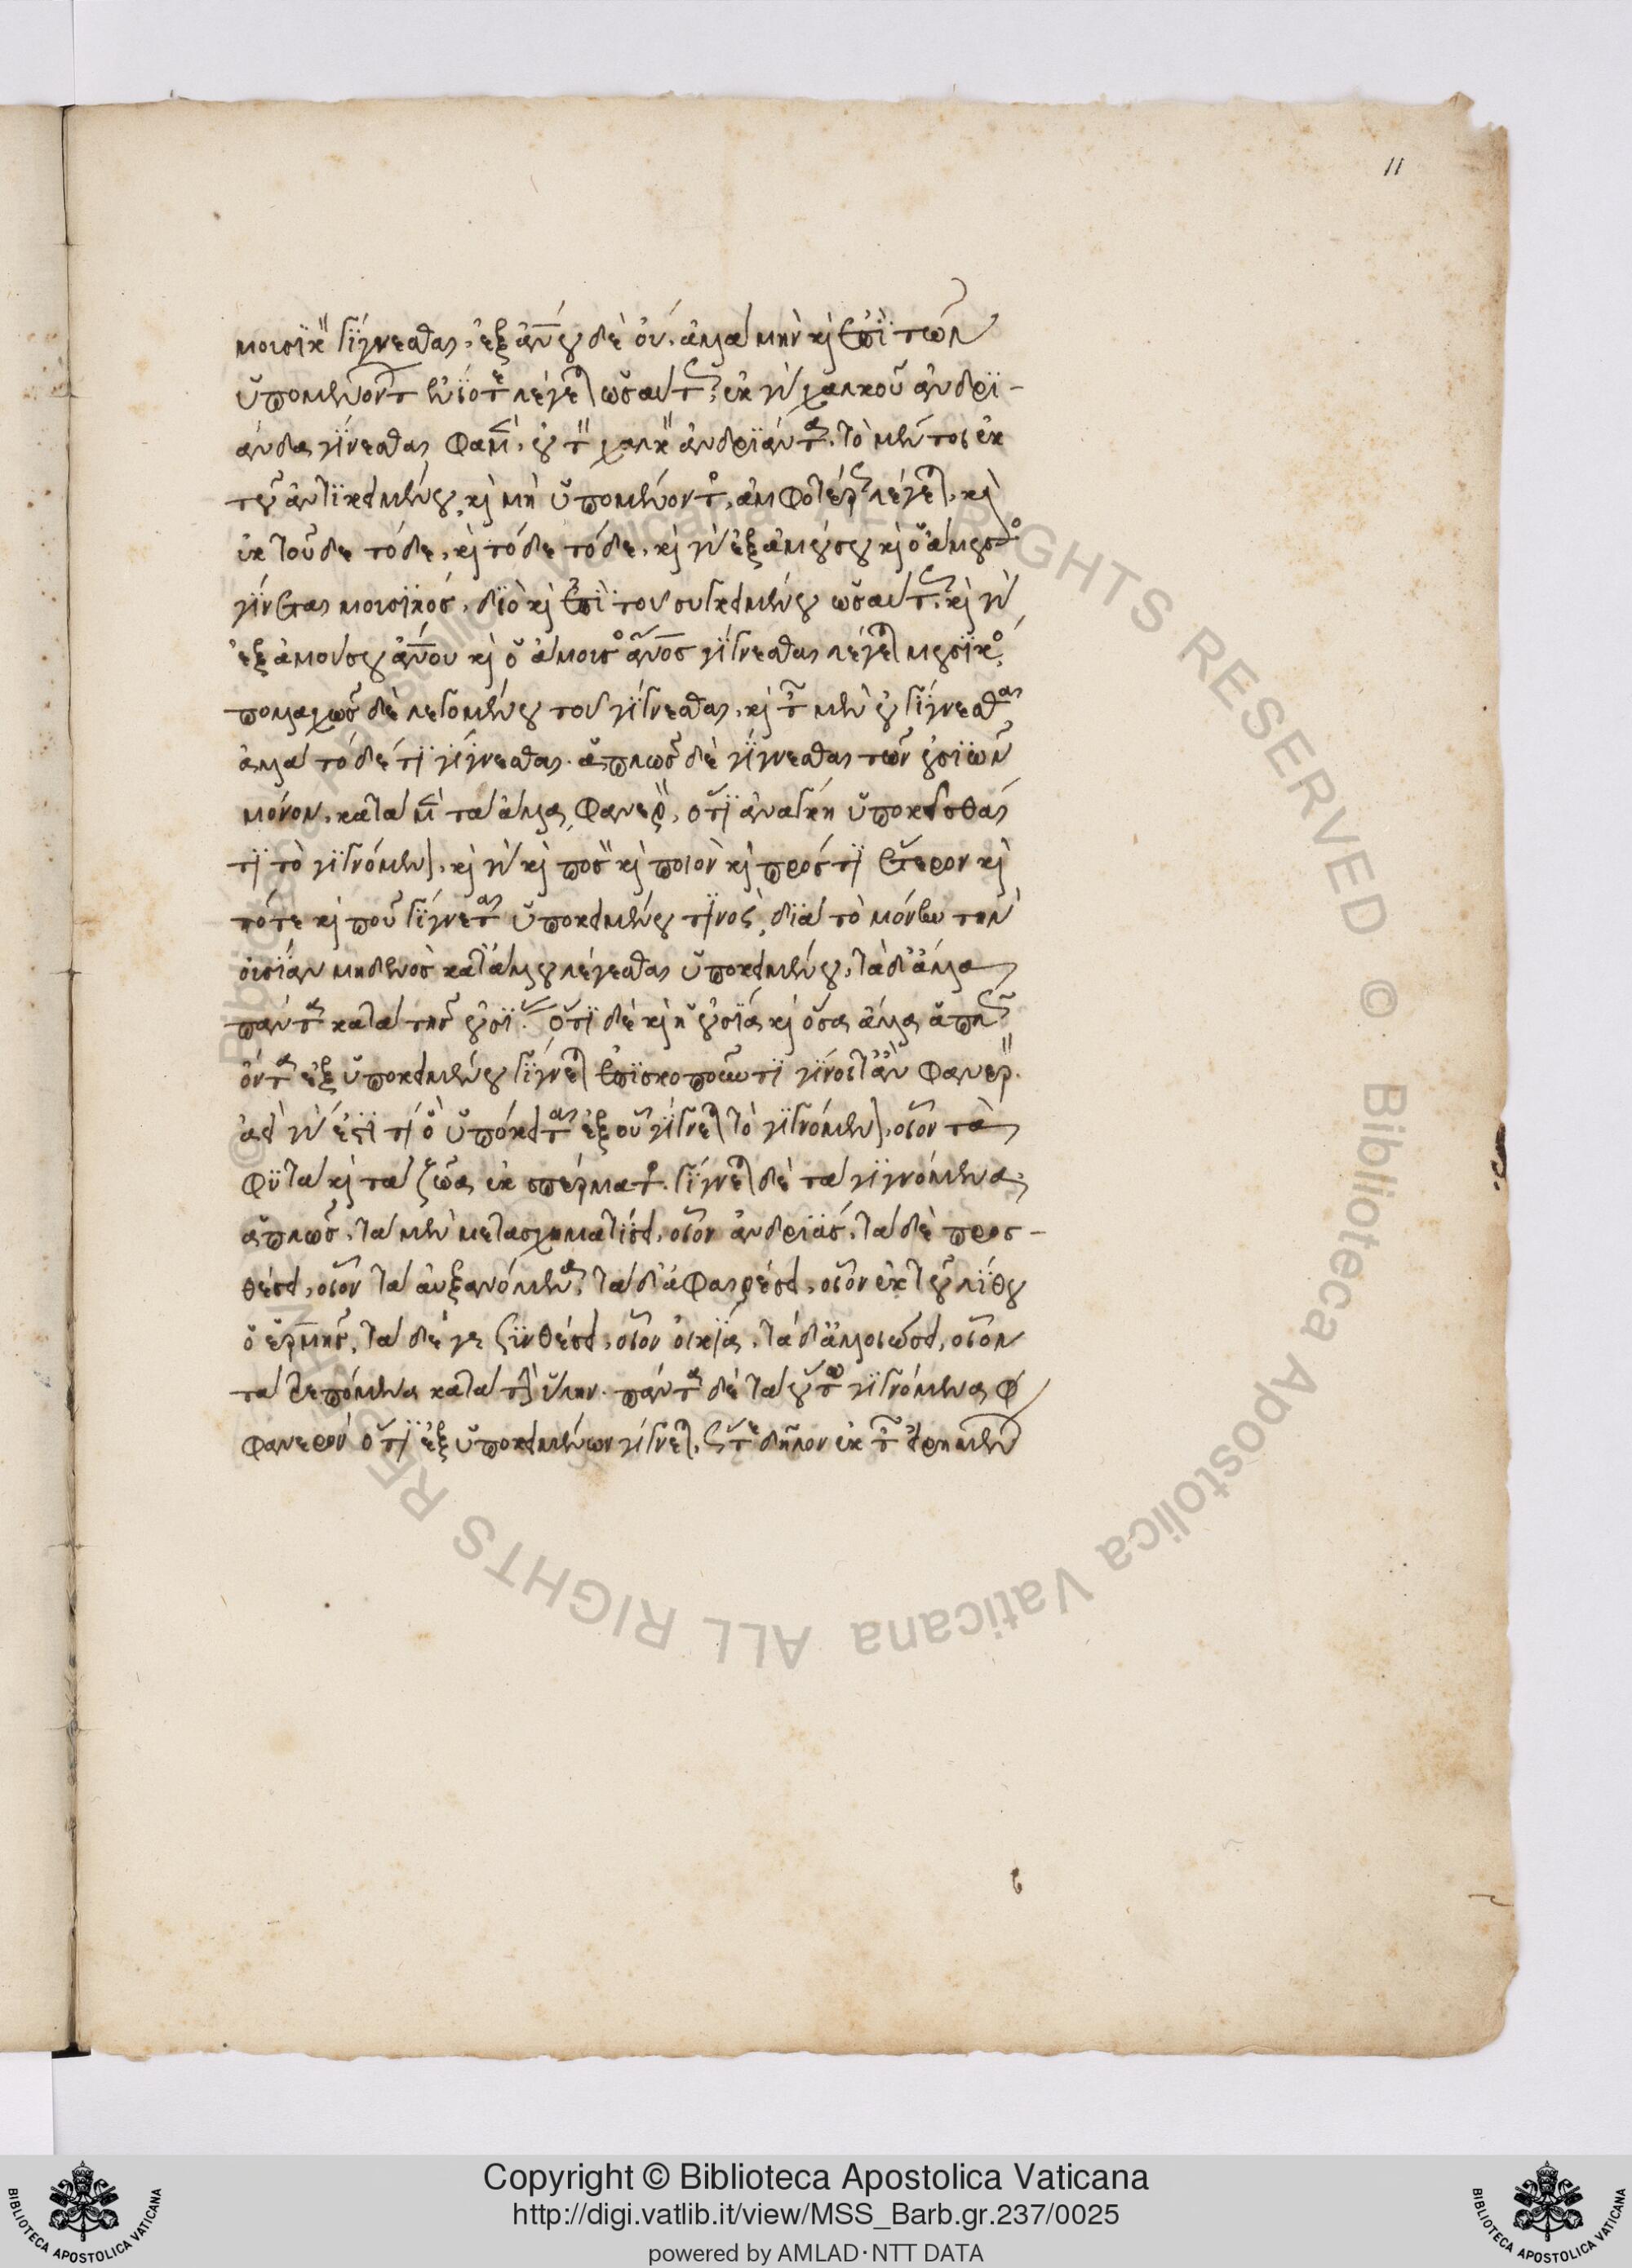 11
μουσικὸν γίγνεσθαι, ἐξ ἀνου δὲ οὔ. ἀλλὰ μὴν καὶ ἐπὶ τῶν
ὑπομενόντων ἐνίοτε λέγεται ὡσαύτως. ἐκ γὰρ χαλκοῦ ἀνδρι-
άντα γίνεσθαι φαμὲν, οὐ τὸν χαλκὸν ἀνδριάντα. τὸ μέντοι ἐκ
τοῦ ἀντικειμένου καὶ μὴ ὑπομένοντος, ἀμφοτέρως λέγεται, καὶ
ἐκ τοῦδε τόδε, καὶ τόδε τόδε, καὶ γὰρ ἐξ ἀμούσου καὶ ὁ ἄμουσος
γίνεται μουσικός, διὸ καὶ ἐπὶ τοῦ συγκειμένου ὡσαύτως, καὶ γὰρ
ἐξ ἀμούσου ἀνου καὶ ὁ ἄμουσος ἄνος γίγνεσθαι λέγεται μουσικός,
πολλαχῶς δὲ λεγομένου τοῦ γίγνεσθαι, καὶ τῶν μὲν οὐ γίγνεσθαι
ἀλλὰ τόδε τι γίγνεσθαι. ἁπλῶς δὲ γίγνεσθαι τῶν οὐσιῶν
μόνον, κατὰ μὲν τὰ ἄλλα, φανερὸν, ὅτι ἀνάγκη ὑποκεῖσθαί
τι τὸ γιγνόμενον, καὶ γὰρ καὶ ποσὸν καὶ ποιὸν καὶ πρός τι ἕτερον καὶ
πότε καὶ ποῦ γίγνεται ὑποκειμένου τινός, διὰ τὸ μόνην τὴν
οὐσίαν μηδενὸς κατ' ἄλλου λέγεσθαι ὑποκειμένου, τὰ δ' ἄλλα
πάντα κατὰ τῆς οὐσίας. ὅτι δὲ καὶ ἡ οὐσία καὶ ὅσα ἄλλα ἁπλῶς
ὄντα ἐξ ὑποκειμένου γίγνεται ἐπισκοποῦντι γένοιτ' ἂν φανερόν.
ἀεὶ γὰρ ἔστι τι ὃ ὑπόκειται ἐξ οὗ γίγνεται τὸ γιγνόμενον, οἷον τὰ
φυτὰ καὶ τὰ ζῶα ἐκ σπέρματος. γίγνεται δὲ τὰ γιγνόμενα
ἁπλῶς, τὰ μὲν μετασχηματίσει, οἷον ἀνδριάς, τὰ δὲ προσ-
θέσει, οἷον τὰ αὐξανόμενα, τὰ δ' ἀφαιρέσει, οἷον ἐκ τοῦ λίθου
ὁ ἑρμῆς, τὰ δέ γε συνθέσει, οἷον οἰκία, τὰ δ' ἀλλοιώσει, οἷον
τὰ τρεπόμενα κατὰ τὴν ὕλην. πάντα δὲ τὰ οὕτω γιγνόμενα φ
φανερὸν ὅτι ἐξ ὑποκειμένων γίγνεται, ὥστε δῆλον ἐκ τῶν εἰρημένων
Copyright © Biblioteca Apostolica Vaticana
http://digi.vatlib.it/view/MSS_Barb.gr.237/0025
powered by AMLAD·NTT DATA
BIBLIOTECA APOSTOLICA VATICANA
BIBLIOTECA APOSTOLICA VATICANA